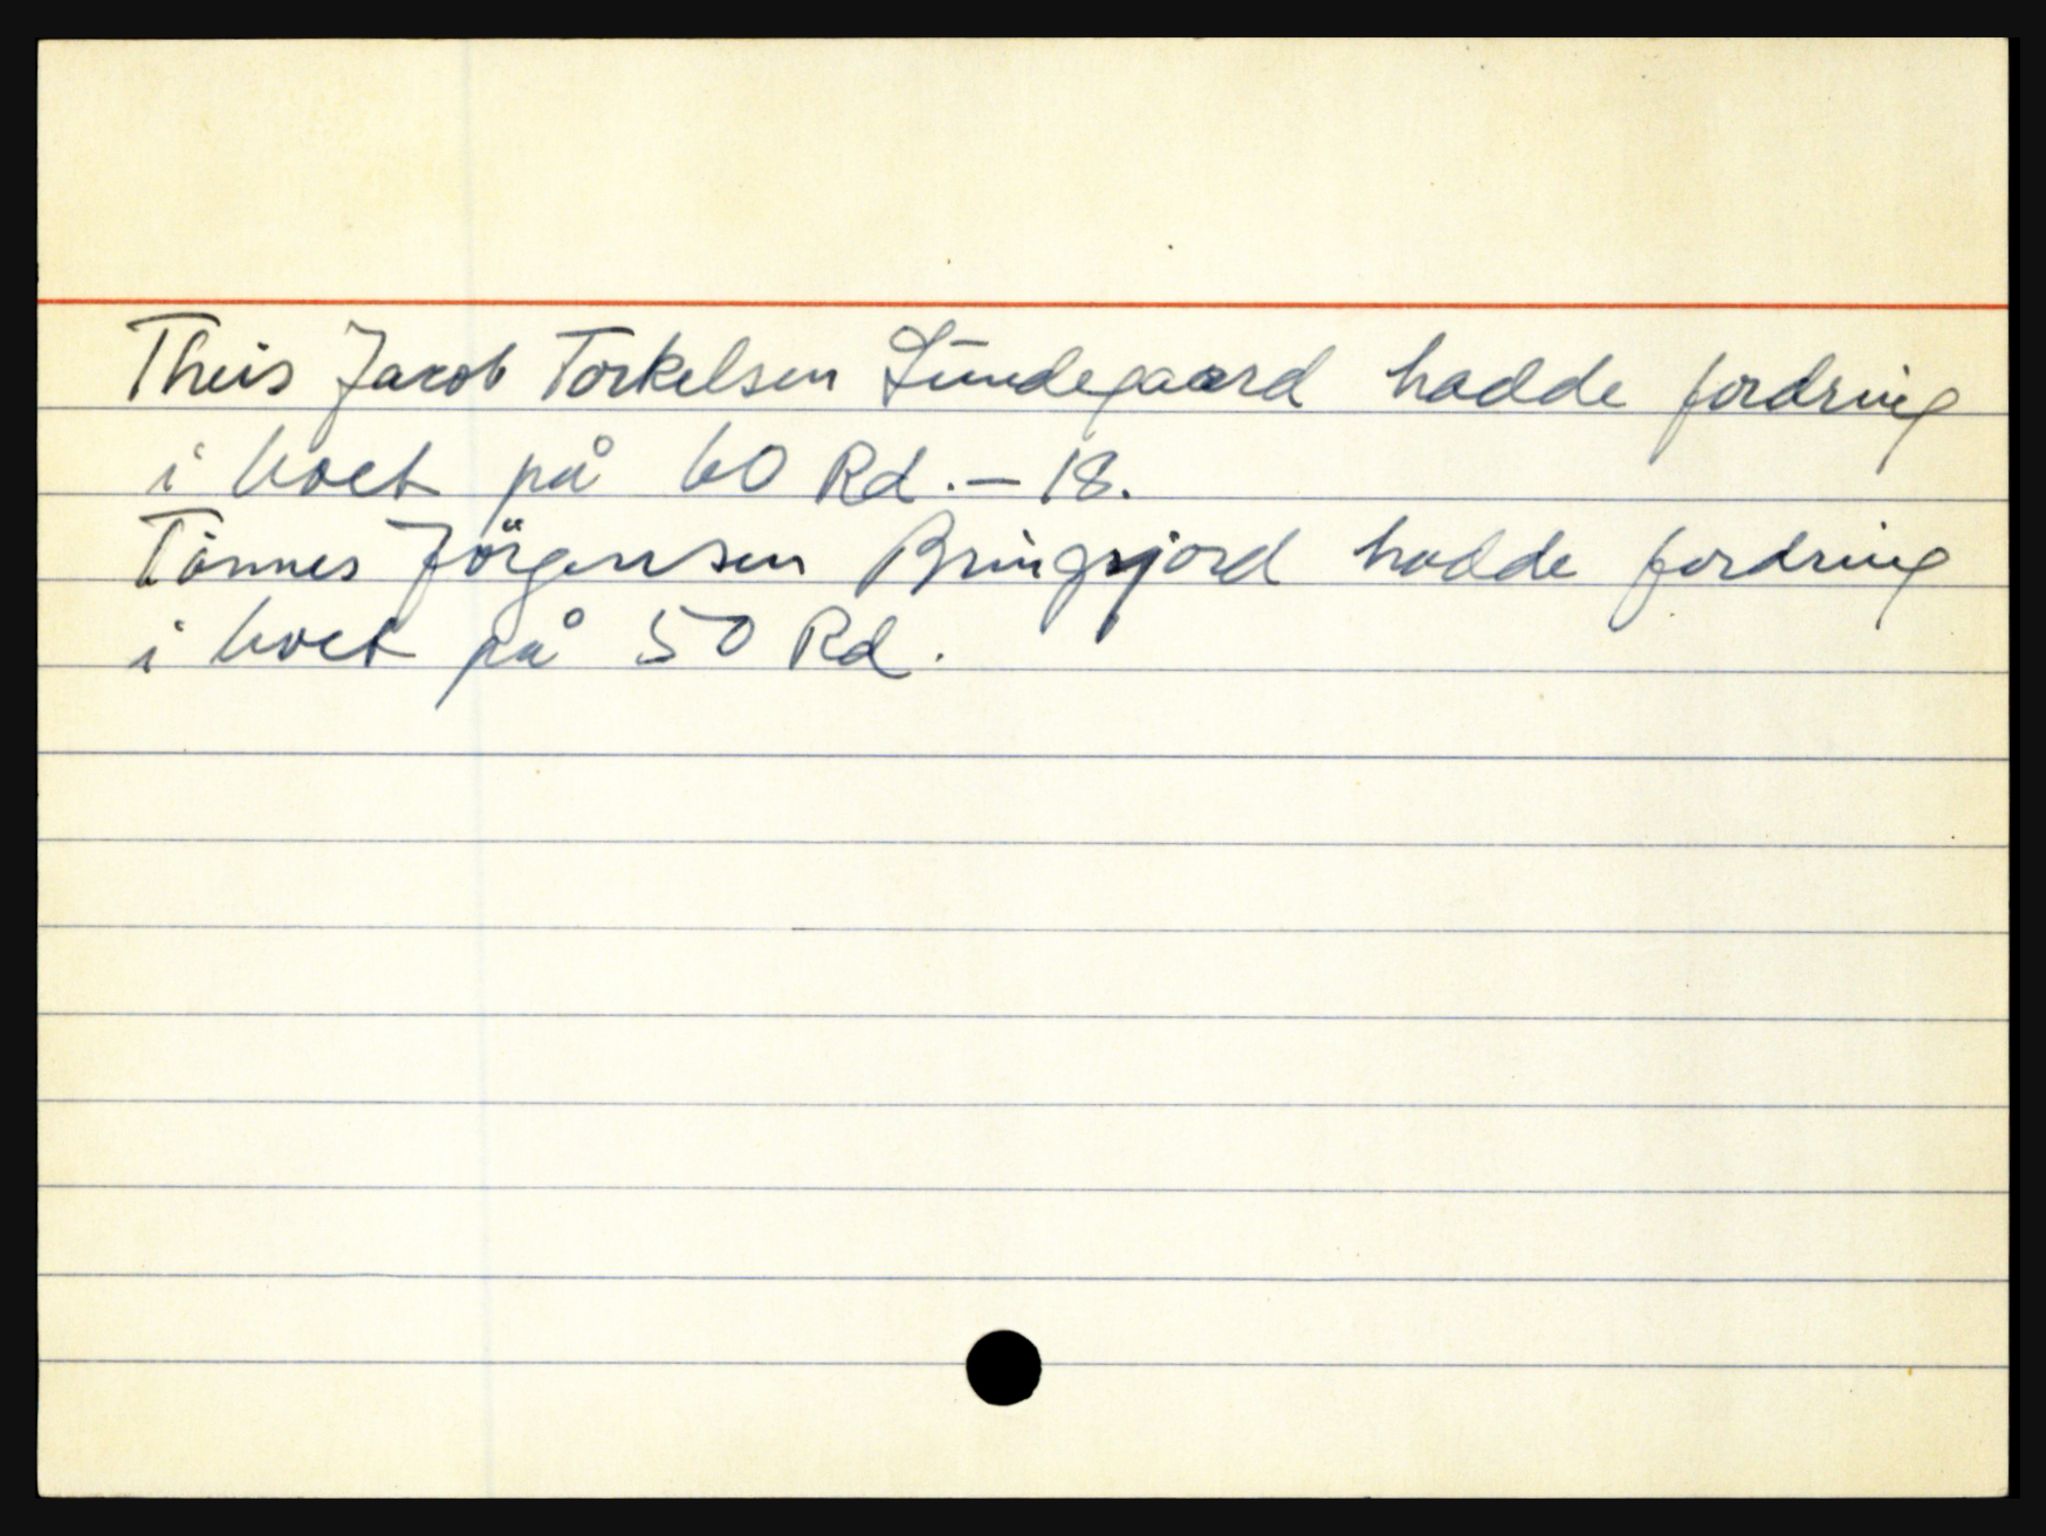 Theis Jacob Torkelsen Lundegaard hadde fordring
i boet på 60 Rd. – 18.
Tönnes Jörgensen Bringsjord hadde fordring
i boet på 50 Rd.